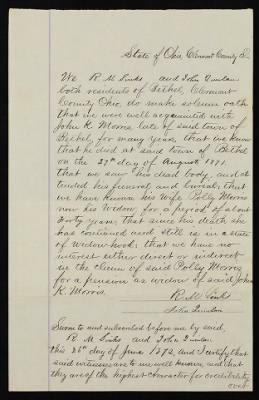 State of Ohio Clermont County S.
We R M Sinks and John Quinlan
both residents of Bethel, Clermont
County Ohio, do make solemn oath
that we were well acquainted with
John K. Morris late of said town of
Bethel, for many years, that we know
that he died at said town of Bethel
on the 27th day of August 1871.
that we saw his dead body, and at
tended his funeral and burial; that
we have known his Wife Polly Morris
now his widow, for a period of about
Forty years; that since his death she
has continued and still is in a state
of widowhood; that we have no
interest either direct or indirect
in the claim of said Polly Morris,
for a pension as widow of said John
K. Morris.
R M Sinks
John Quinlan
Sworn to and subscribed before me by said,
R. M Sinks and John Quinlan
this 26th day of June 1872, and I certify that
said witnesses are to me well known, and that
they are of the highest character for credibility,
over